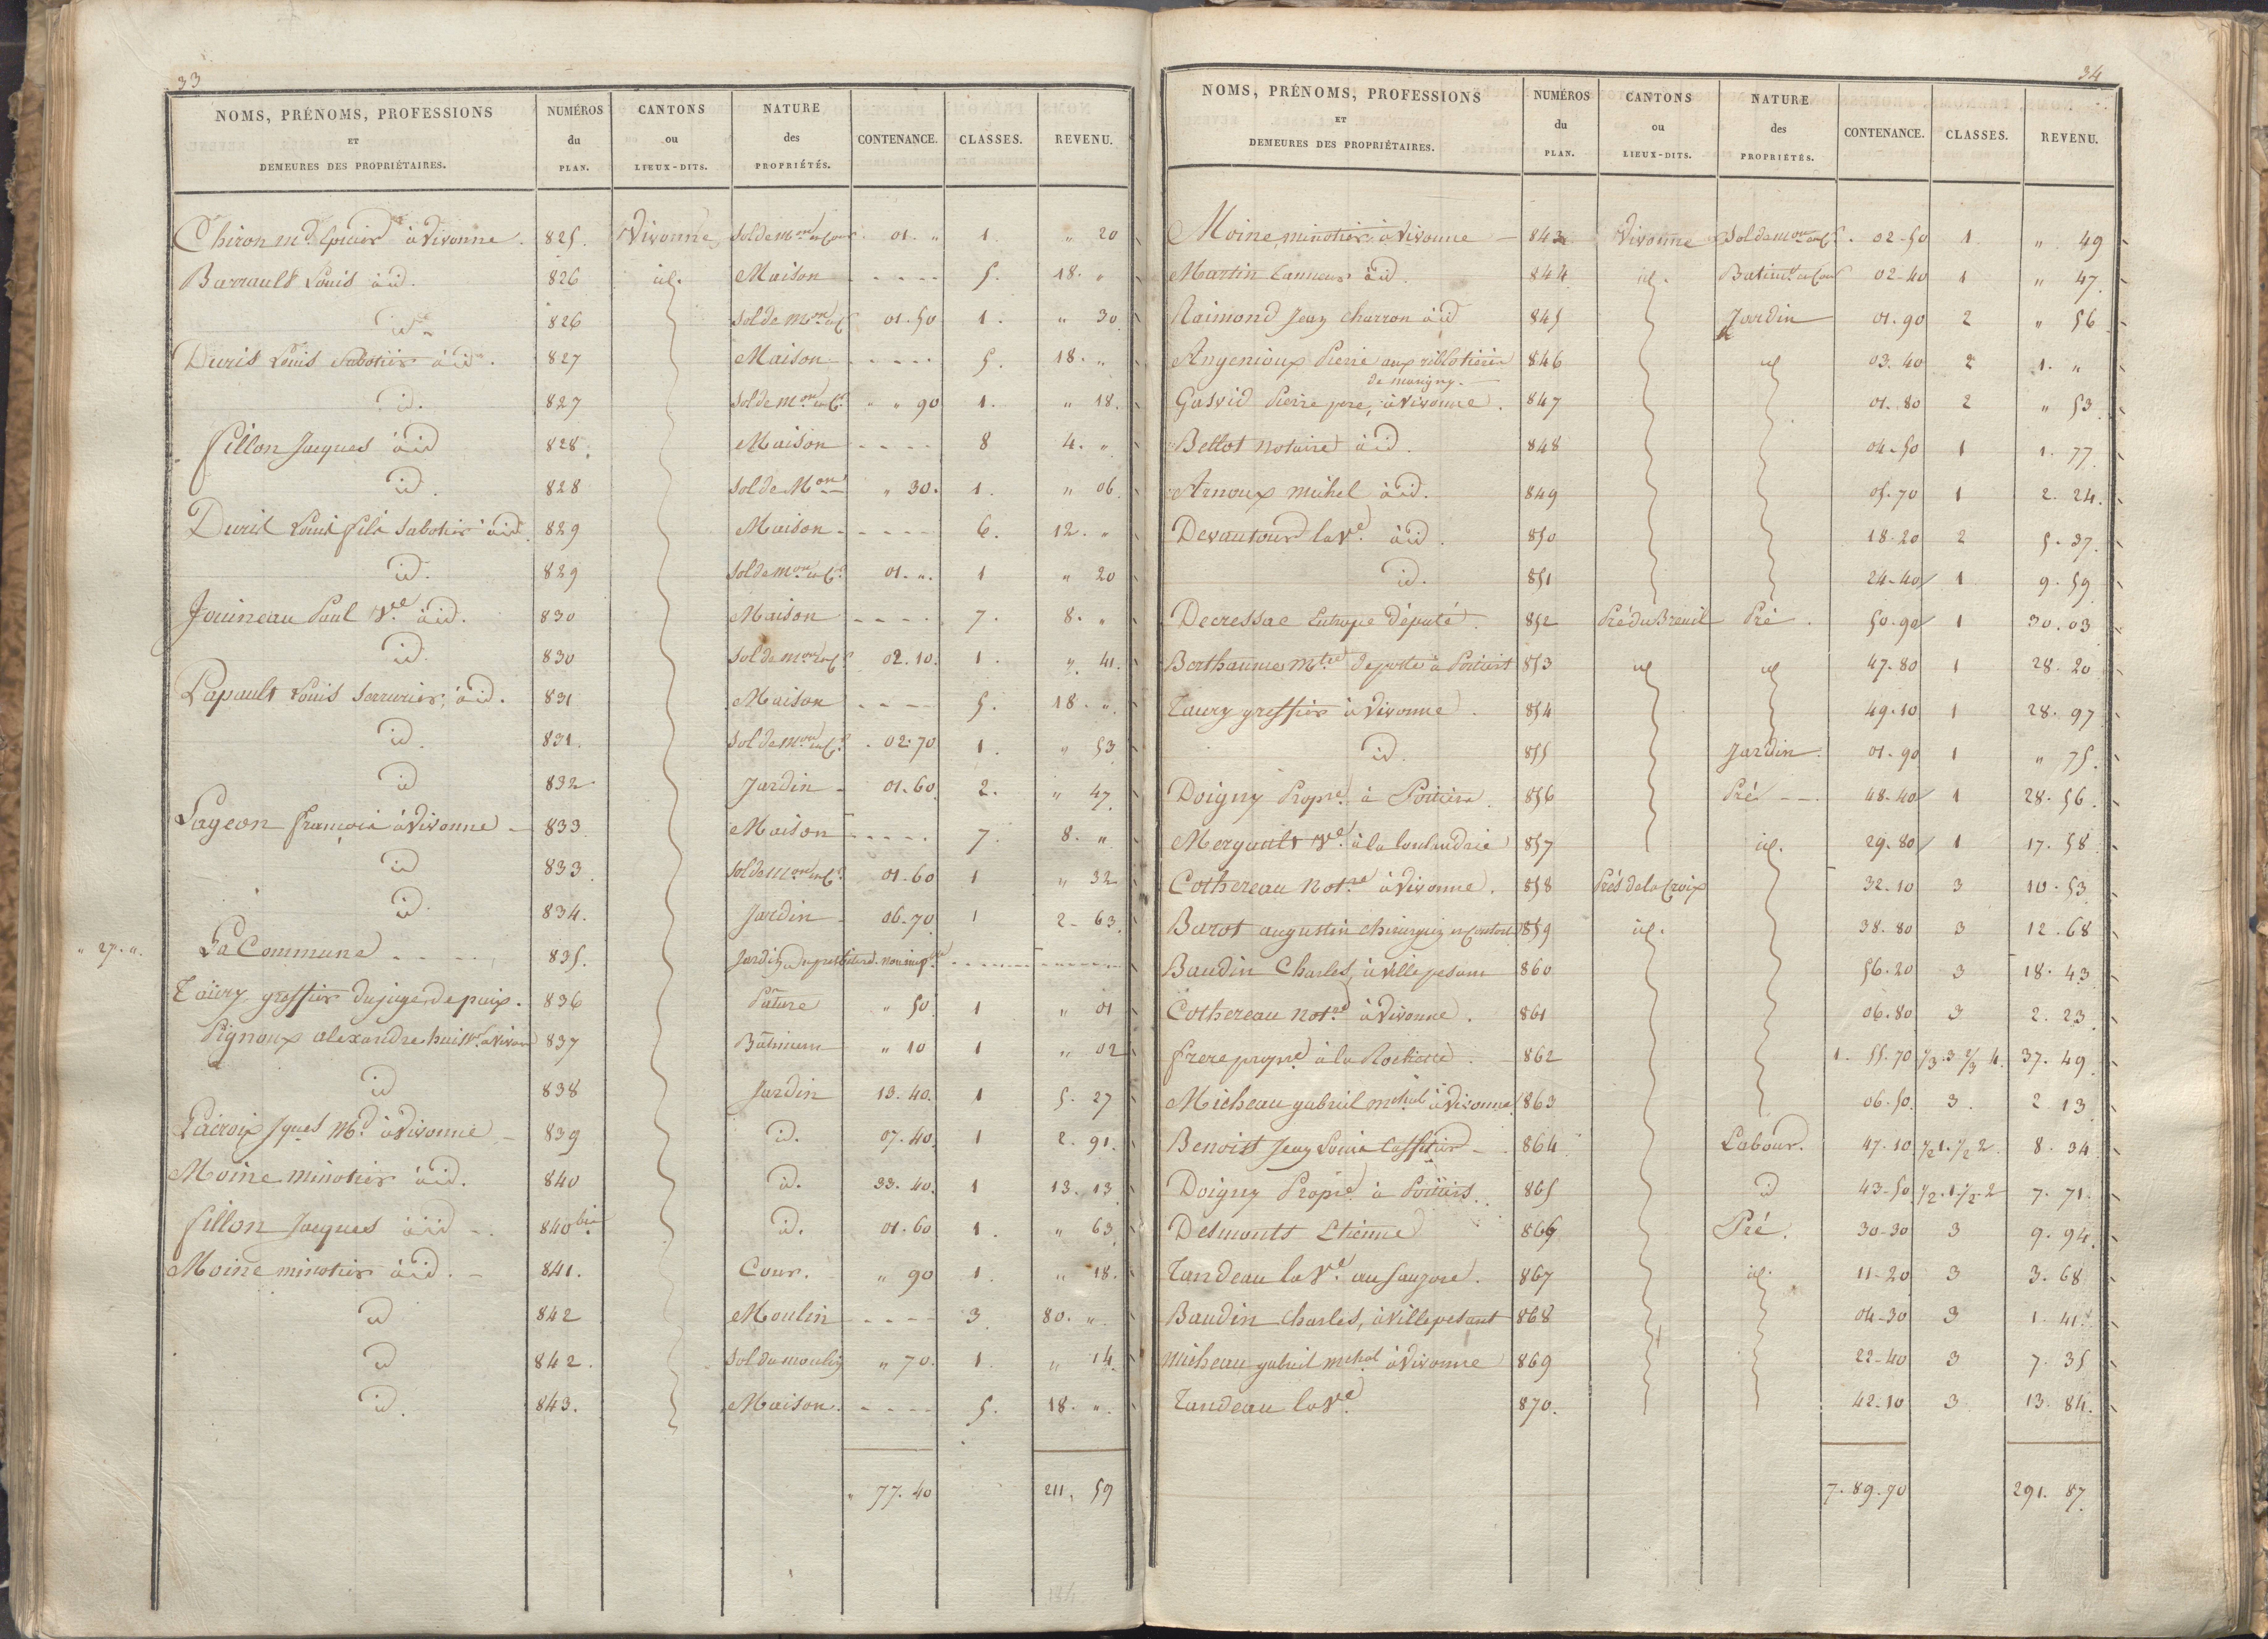 33
NOMS, PRÉNOMS, PROFESSIONS ET DEMEURES DES PROPRIÉTAIRES. NUMÉROS du PLAN. CANTONS ou LIEUX-DITS. NATURE des PROPRIÉTÉS. CONTENANCE. CLASSES. REVENU.
Chiron md Epicier à Vivonne. 825. Vivonne Sol de mon et Cour 01. " 1. " 20
Barrault Louis à id. 826 id. Maison - - - - 5. 18. "
id. 826 Sol de mon et C. 01. 50 1. " 30
Duris Louis Sabotier à id. 827 Maison - - - - 5. 18. "
id. 827 Sol de mon et Cr " " 90 1. " 18.
fillon Jacques à id 828. Maison - - - - 8 4. "
id. 828 Sol de Mon " 30. 1. " 06
Duris Louis fils Sabotier à id. 829 Maison - - - - 6. 12. "
id. 829 Sol de mon et Cr 01. ". 1 " 20
Jouineau Paul Vve à id. 830 Maison - - - - 7. 8. "
id. 830 Sol de mon et Cr 02. 10. 1. " 41.
Papault Louis Serrurier, à id. 831 Maison - - - - 5. 18. "
id. 831. Sol de mon et Cr 02. 70 1. " 53
id 832 Jardin - 01. 60 2. " 47
Pageon françois à Vivonne - 833 Maison - - - - 7. 8. "
id 833. Sol de mon et Cr 01. 60 1 " 32
id. 834. Jardin - 06. 70 1 2. 63
" 27. " La Commune - - - - 835. Jardin du presbitere non imp.ble
Taury greffier du juge de paix. 836 Pature " 50 1 " 01
Pignoux alexandre huissr à Vivonne 837 Batiment " 10 1 " 02
id 838 Jardin 13. 40. 1 5. 27
Lacroix Jques Md à Vivonne - 839 id. 07. 40. 1 2. 91.
Moine minotier à id. 840 id. 33. 40. 1 13. 13
fillon Jacques à id - 840 bis id. 01. 60 1. " 63
Moine minotier à id. - 841. Cour. " 90 1. " 18.
id 842 Moulin - - - - 3 80. "
id 842. Sol du moulin " 70. 1. " 14
id. 843. Maison. - - - - 5. 18. ".
" 77. 40 211. 59
34
NOMS, PRÉNOMS, PROFESSIONS ET DEMEURES DES PROPRIÉTAIRES. NUMÉROS du PLAN. CANTONS ou LIEUX-DITS. NATURE des PROPRIÉTÉS. CONTENANCE. CLASSES. REVENU.
Moine minotier à Vivonne - 843 Vivonne Sol de mon et Cr. 02-50 1 " 49
Martin Tanneur à id. 844 id. Batimt et Cour 02-40 1 " 47.
Raimond Jean charron à id 845 Jardin 01. 90 2 " 56
Angenioux Pierre aux 846 id 03. 40 2 1. "
de marigny.
Gasvid Pierre pere, à Vivonne. 847 01. 80 2 " 53
Bellot notaire à id. 848 04. 50 1 1. 77
Arnoux michel à id. 849 05. 70 1 2. 24.
Devautour la Ve à id. 850 18. 20 2 5. 37.
id. 851 24. 40 1 9. 59
Decressac Eutrope député. 852 Pré du Breuil Pré. 50. 90 1 30. 03
Berthaume Mtre de poste à Poitiers 853 id id 47. 80 1 28. 20
Taury greffier à Vivonne. 854 49. 10 1 28. 97
id. 855 Jardin. 01. 90 1 " 75.
Doigny Propre à Poitiers. 856 Pré - - 48. 40 1 28. 56.
Mergault Ve à la 857 id. 29. 80 1 17. 58
Cothereau Notre à Vivonne. 858 Prés de la Croix 32. 10 3 10. 53
Barot augustin chirurgien 859 id. 38. 80 3 12. 68
Baudin Charles, à Villepesant 860 56. 20 3 18. 43
Cothereau Notre à Vivonne. 861 06. 80 3 2. 23
frere propre à la 862 1. 55. 70 1/3.3 2/3 4. 37. 49
Micheau gabriel mchal à Vivonne 863 06. 50. 3. 2 13
Benoist Jean Louis Caffetier - 864 Labour. 47. 10 1/2 1. 1/2 2. 8. 34
Doigny Propre à Poitiers. 865 id 43. 50 1/2. 1. 1/2. 2 7. 71.
Desmonts Etienne 866 Pré. 30-30 3 9. 94.
Tandeau la Ve au 867 id. 11-20 3 3. 68
Baudin Charles, à Villepesant 868 04-30 3 1. 41.
Micheau gabriel mchal à Vivonne 869 22-40 3 7. 35
Tandeau la Ve 870. 42-10 3 13. 84.
7. 89. 70 291. 87